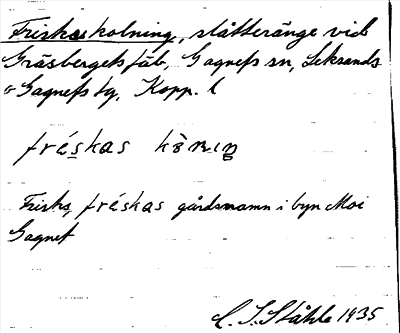 Friskaskolning, slåtteränge vid
Gräsbergets fäb, Gagnefs sn, Leksands
o Gagnefs tg, Kopp. l
fréskas
Frisks, fréskas gårdsnamn i byn Moi
Gagnef
C. I. Ståhle 1935